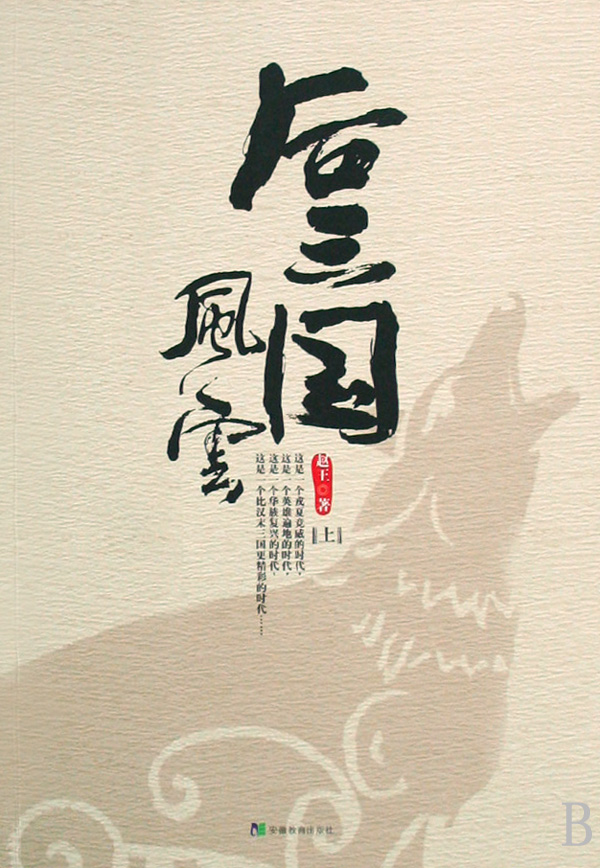 后三国
風雲
赵王◎著
上
这是一个戎夏竞威的时代，
这是一个英雄遍地的时代，
这是一个华族复兴的时代，
这是一个比汉末三国更精彩的时代……
安徽教育出版社
B